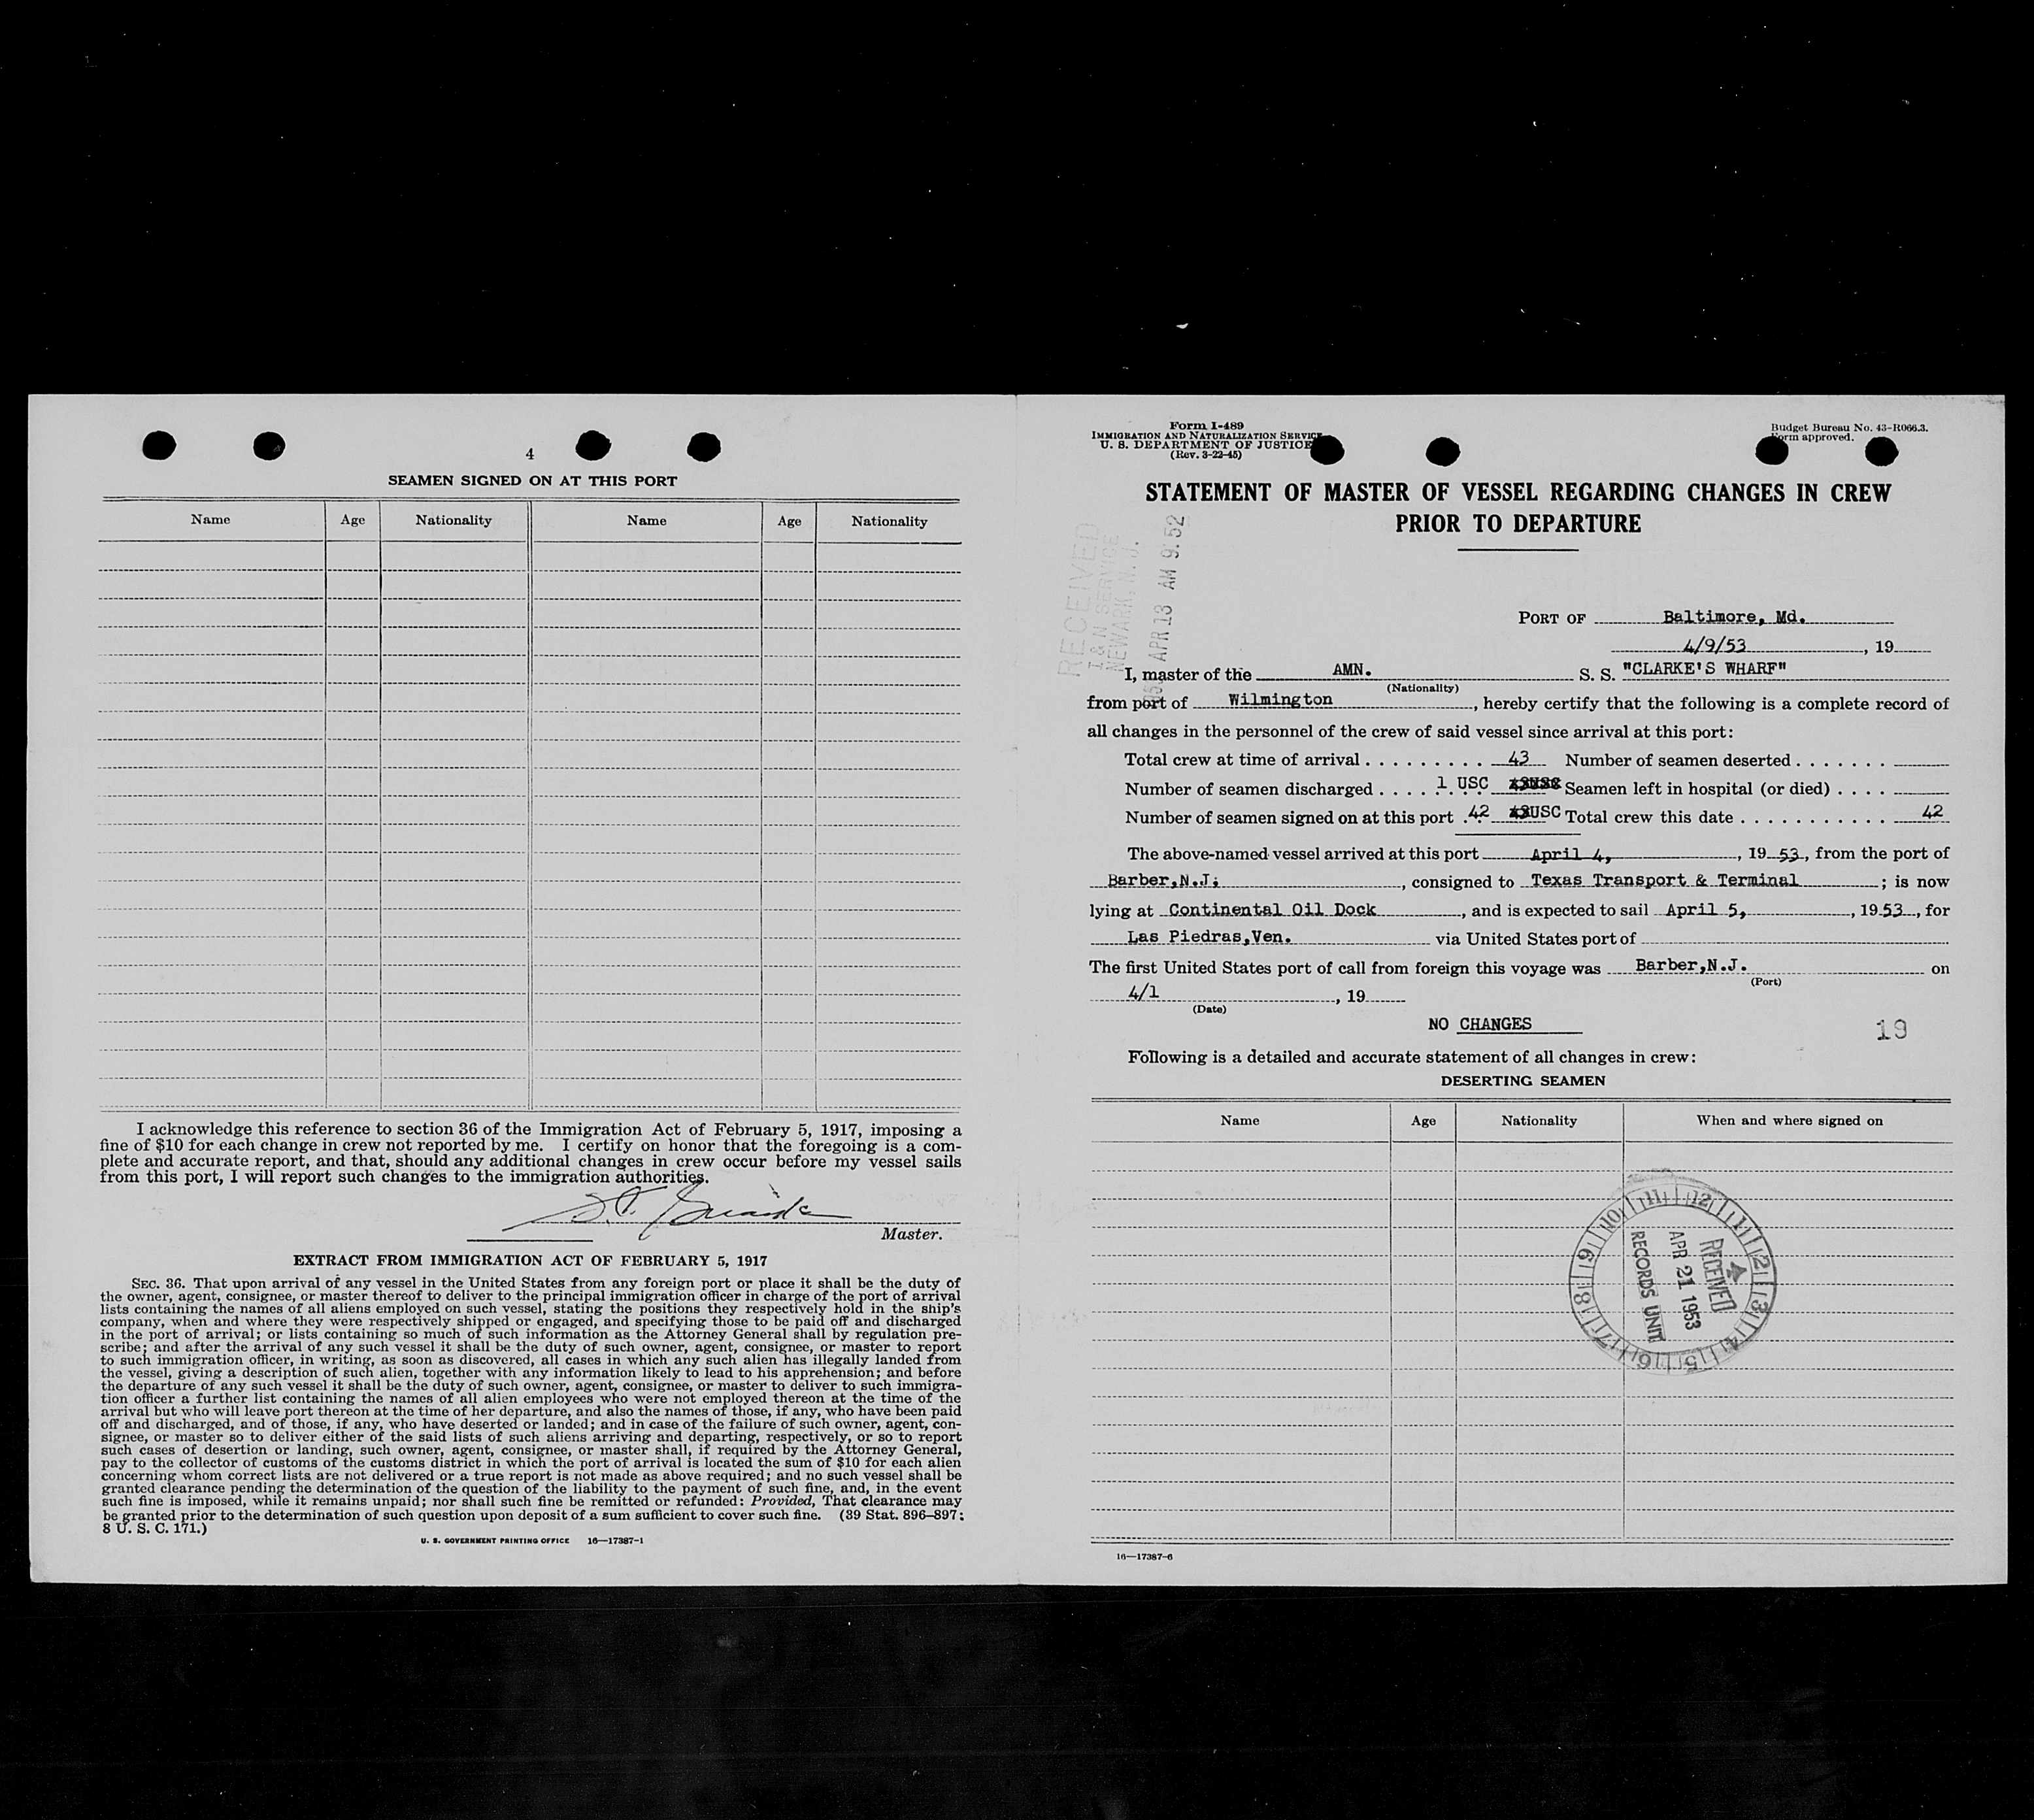 4
SEAMEN SIGNED ON AT THIS PORT
Name Age Nationality Name Age Nationality
I acknowledge this reference to section 36 of the Immigration Act of February 5, 1917, imposing a
fine of $10 for each change in crew not reported by me. I certify on honor that the foregoing is a com-
plete and accurate report, and that, should any additional changes in crew occur before my vessel sails
from this port, I will report such changes to the immigration authorities.
Master.
EXTRACT FROM IMMIGRATION ACT OF FEBRUARY 5, 1917
SEC. 36. That upon arrival of any vessel in the United States from any foreign port or place it shall be the duty of
the owner, agent, consignee, or master thereof to deliver to the principal immigration officer in charge of the port of arrival
lists containing the names of all aliens employed on such vessel, stating the positions they respectively hold in the ship's
company, when and where they were respectively shipped or engaged, and specifying those to be paid off and discharged
in the port of arrival; or lists containing so much of such information as the Attorney General shall by regulation pre-
scribe; and after the arrival of any such vessel it shall be the duty of such owner, agent, consignee, or master to report
to such immigration officer, in writing, as soon as discovered, all cases in which any such alien has illegally landed from
the vessel, giving a description of such alien, together with any information likely to lead to his apprehension; and before
the departure of any such vessel it shall be the duty of such owner, agent, consignee, or master to deliver to such immigra-
tion officer a further list containing the names of all alien employees who were not employed thereon at the time of the
arrival but who will leave port thereon at the time of her departure, and also the names of those, if any, who have been paid
off and discharged, and of those, if any, who have deserted or landed; and in case of the failure of such owner, agent, con-
signee, or master so to deliver either of the said lists of such aliens arriving and departing, respectively, or so to report
such cases of desertion or landing, such owner, agent, consignee, or master shall, if required by the Attorney General,
pay to the collector of customs of the customs district in which the port of arrival is located the sum of $10 for each alien
concerning whom correct lists are not delivered or a true report is not made as above required; and no such vessel shall be
granted clearance pending the determination of the question of the liability to the payment of such fine, and, in the event
such fine is imposed, while it remains unpaid; nor shall such fine be remitted or refunded: Provided, That clearance may
be granted prior to the determination of such question upon deposit of a sum sufficient to cover such fine. (39 Stat. 896–897;
8 U. S. C. 171.)
U. S. GOVERNMENT PRINTING OFFICE 16—17387-1
Form I-489
IMMIGRATION AND NATURALIZATION SERVICE
U. S. DEPARTMENT OF JUSTICE
(Rev. 3-22-45)
Budget Bureau No. 43-R066.3.
Form approved.
STATEMENT OF MASTER OF VESSEL REGARDING CHANGES IN CREW
PRIOR TO DEPARTURE
RECEIVED
I & N SERVICE
NEWARK, N. J.
APR 13 AM 9:52
PORT OF Baltimore, Md.
4/9/53, 19
I, master of the AMN. S. S. "CLARKE'S WHARF"
(Nationality)
from port of Wilmington, hereby certify that the following is a complete record of
all changes in the personnel of the crew of said vessel since arrival at this port:
Total crew at time of arrival . . . . . . . . . 43 Number of seamen deserted . . . . . . .
Number of seamen discharged . . . . . . . 1 USC Seamen left in hospital (or died) . . . .
Number of seamen signed on at this port . 42 USC Total crew this date . . . . . . . . . . . 42
The above-named vessel arrived at this port April 4, , 19 53, from the port of
Barber,N.J; , consigned to Texas Transport & Terminal ; is now
lying at Continental Oil Dock , and is expected to sail April 5, , 19 53, for
Las Piedras,Ven. via United States port of
The first United States port of call from foreign this voyage was Barber,N.J. on
(Port)
4/1 , 19
(Date)
NO CHANGES
19
Following is a detailed and accurate statement of all changes in crew:
DESERTING SEAMEN
Name Age Nationality When and where signed on
12 1 2 3 4 5 6 7 8 9 10 11
RECEIVED
APR 21 1953
RECORDS UNIT
16—17387-6